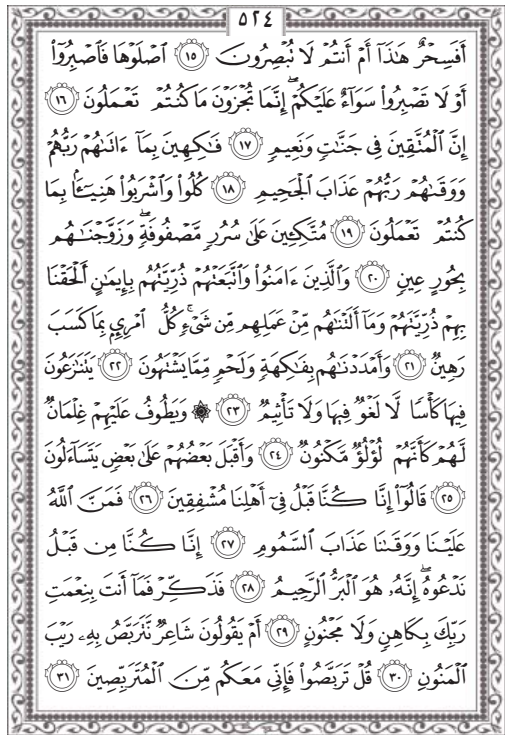 ٥٢٤
أَفَسِحْرٌ هَٰذَآ أَمْ أَنتُمْ لَا تُبْصِرُونَ ١٥ ٱصْلَوْهَا فَٱصْبِرُوٓا۟
أَوْ لَا تَصْبِرُوا۟ سَوَآءٌ عَلَيْكُمْ ۖ إِنَّمَا تُجْزَوْنَ مَا كُنتُمْ تَعْمَلُونَ ١٦
إِنَّ ٱلْمُتَّقِينَ فِى جَنَّٰتٍ وَنَعِيمٍ ١٧ فَٰكِهِينَ بِمَآ ءَاتَىٰهُمْ رَبُّهُمْ
وَوَقَىٰهُمْ رَبُّهُمْ عَذَابَ ٱلْجَحِيمِ ١٨ كُلُوا۟ وَٱشْرَبُوا۟ هَنِيٓـًٔۢا بِمَا
كُنتُمْ تَعْمَلُونَ ١٩ مُتَّكِـِٔينَ عَلَىٰ سُرُرٍ مَّصْفُوفَةٍ ۖ وَزَوَّجْنَٰهُم
بِحُورٍ عِينٍ ٢٠ وَٱلَّذِينَ ءَامَنُوا۟ وَٱتَّبَعَتْهُمْ ذُرِّيَّتُهُم بِإِيمَٰنٍ أَلْحَقْنَا
بِهِمْ ذُرِّيَّتَهُمْ وَمَآ أَلَتْنَٰهُم مِّنْ عَمَلِهِم مِّن شَىْءٍ ۚ كُلُّ ٱمْرِئٍۭ بِمَا كَسَبَ
رَهِينٌ ٢١ وَأَمْدَدْنَٰهُم بِفَٰكِهَةٍ وَلَحْمٍ مِّمَّا يَشْتَهُونَ ٢٢ يَتَنَٰزَعُونَ
فِيهَا كَأْسًا لَّا لَغْوٌ فِيهَا وَلَا تَأْثِيمٌ ٢٣ ۞ وَيَطُوفُ عَلَيْهِمْ غِلْمَانٌ
لَّهُمْ كَأَنَّهُمْ لُؤْلُؤٌ مَّكْنُونٌ ٢٤ وَأَقْبَلَ بَعْضُهُمْ عَلَىٰ بَعْضٍ يَتَسَآءَلُونَ
٢٥ قَالُوٓا۟ إِنَّا كُنَّا قَبْلُ فِىٓ أَهْلِنَا مُشْفِقِينَ ٢٦ فَمَنَّ ٱللَّهُ
عَلَيْنَا وَوَقَىٰنَا عَذَابَ ٱلسَّمُومِ ٢٧ إِنَّا كُنَّا مِن قَبْلُ
نَدْعُوهُ ۖ إِنَّهُۥ هُوَ ٱلْبَرُّ ٱلرَّحِيمُ ٢٨ فَذَكِّرْ فَمَآ أَنتَ بِنِعْمَتِ
رَبِّكَ بِكَاهِنٍ وَلَا مَجْنُونٍ ٢٩ أَمْ يَقُولُونَ شَاعِرٌ نَّتَرَبَّصُ بِهِۦ رَيْبَ
ٱلْمَنُونِ ٣٠ قُلْ تَرَبَّصُوا۟ فَإِنِّى مَعَكُم مِّنَ ٱلْمُتَرَبِّصِينَ ٣١